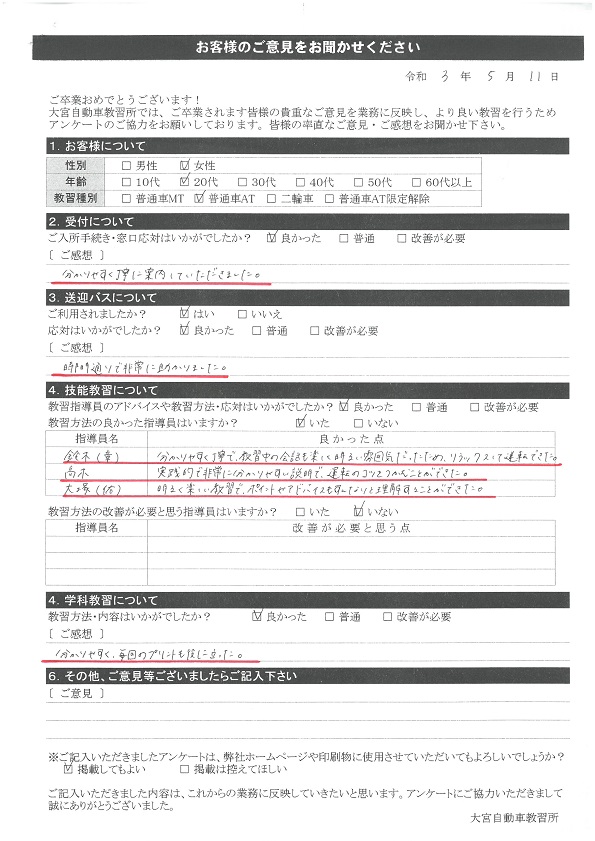 お客様のご意見をお聞かせください
令和 3 年 5 月 11 日
ご卒業おめでとうございます！
大宮自動車教習所では、ご卒業されます皆様の貴重なご意見を業務に反映し、より良い教習を行うため
アンケートのご協力をお願いしております。皆様の率直なご意見・ご感想をお聞かせ下さい。
1. お客様について
性別 □ 男性 ☑ 女性
年齢 □ 10代 ☑ 20代 □ 30代 □ 40代 □ 50代 □ 60代以上
教習種別 □ 普通車MT ☑ 普通車AT □ 二輪車 □ 普通車AT限定解除
2. 受付について
ご入所手続き・窓口応対はいかがでしたか？ ☑ 良かった □ 普通 □ 改善が必要
〔 ご感想 〕
分かりやすく丁寧に案内していただきました。
3. 送迎バスについて
ご利用されましたか？ ☑ はい □ いいえ
応対はいかがでしたか？ ☑ 良かった □ 普通 □ 改善が必要
〔 ご感想 〕
時間通りで非常に助かりました。
4. 技能教習について
教習指導員のアドバイスや教習方法・応対はいかがでしたか？ ☑ 良かった □ 普通 □ 改善が必要
教習方法の良かった指導員はいますか？ ☑ いた □ いない
指導員名 良かった点
鈴木(章) 分かりやすく丁寧で、教習中の会話も楽しく明るい雰囲気だったため、リラックスして運転できた。
高木 実践的で非常に分かりやすい説明で、運転のコツをつかむことができた。
大塚(佑) 明るく楽しい教習で、ポイントやアドバイスもすんなりと理解することができた。
教習方法の改善が必要と思う指導員はいますか？ □ いた ☑ いない
指導員名 改善が必要と思う点
4. 学科教習について
教習方法・内容はいかがでしたか？ ☑ 良かった □ 普通 □ 改善が必要
〔 ご感想 〕
分かりやすく、毎回のプリントも役に立った。
6. その他、ご意見等ございましたらご記入下さい
〔 ご意見 〕
※ご記入いただきましたアンケートは、弊社ホームページや印刷物に使用させていただいてもよろしいでしょうか？
☑ 掲載してもよい □ 掲載は控えてほしい
ご記入いただきました内容は、これからの業務に反映していきたいと思います。アンケートにご協力いただきまして
誠にありがとうございました。
大宮自動車教習所